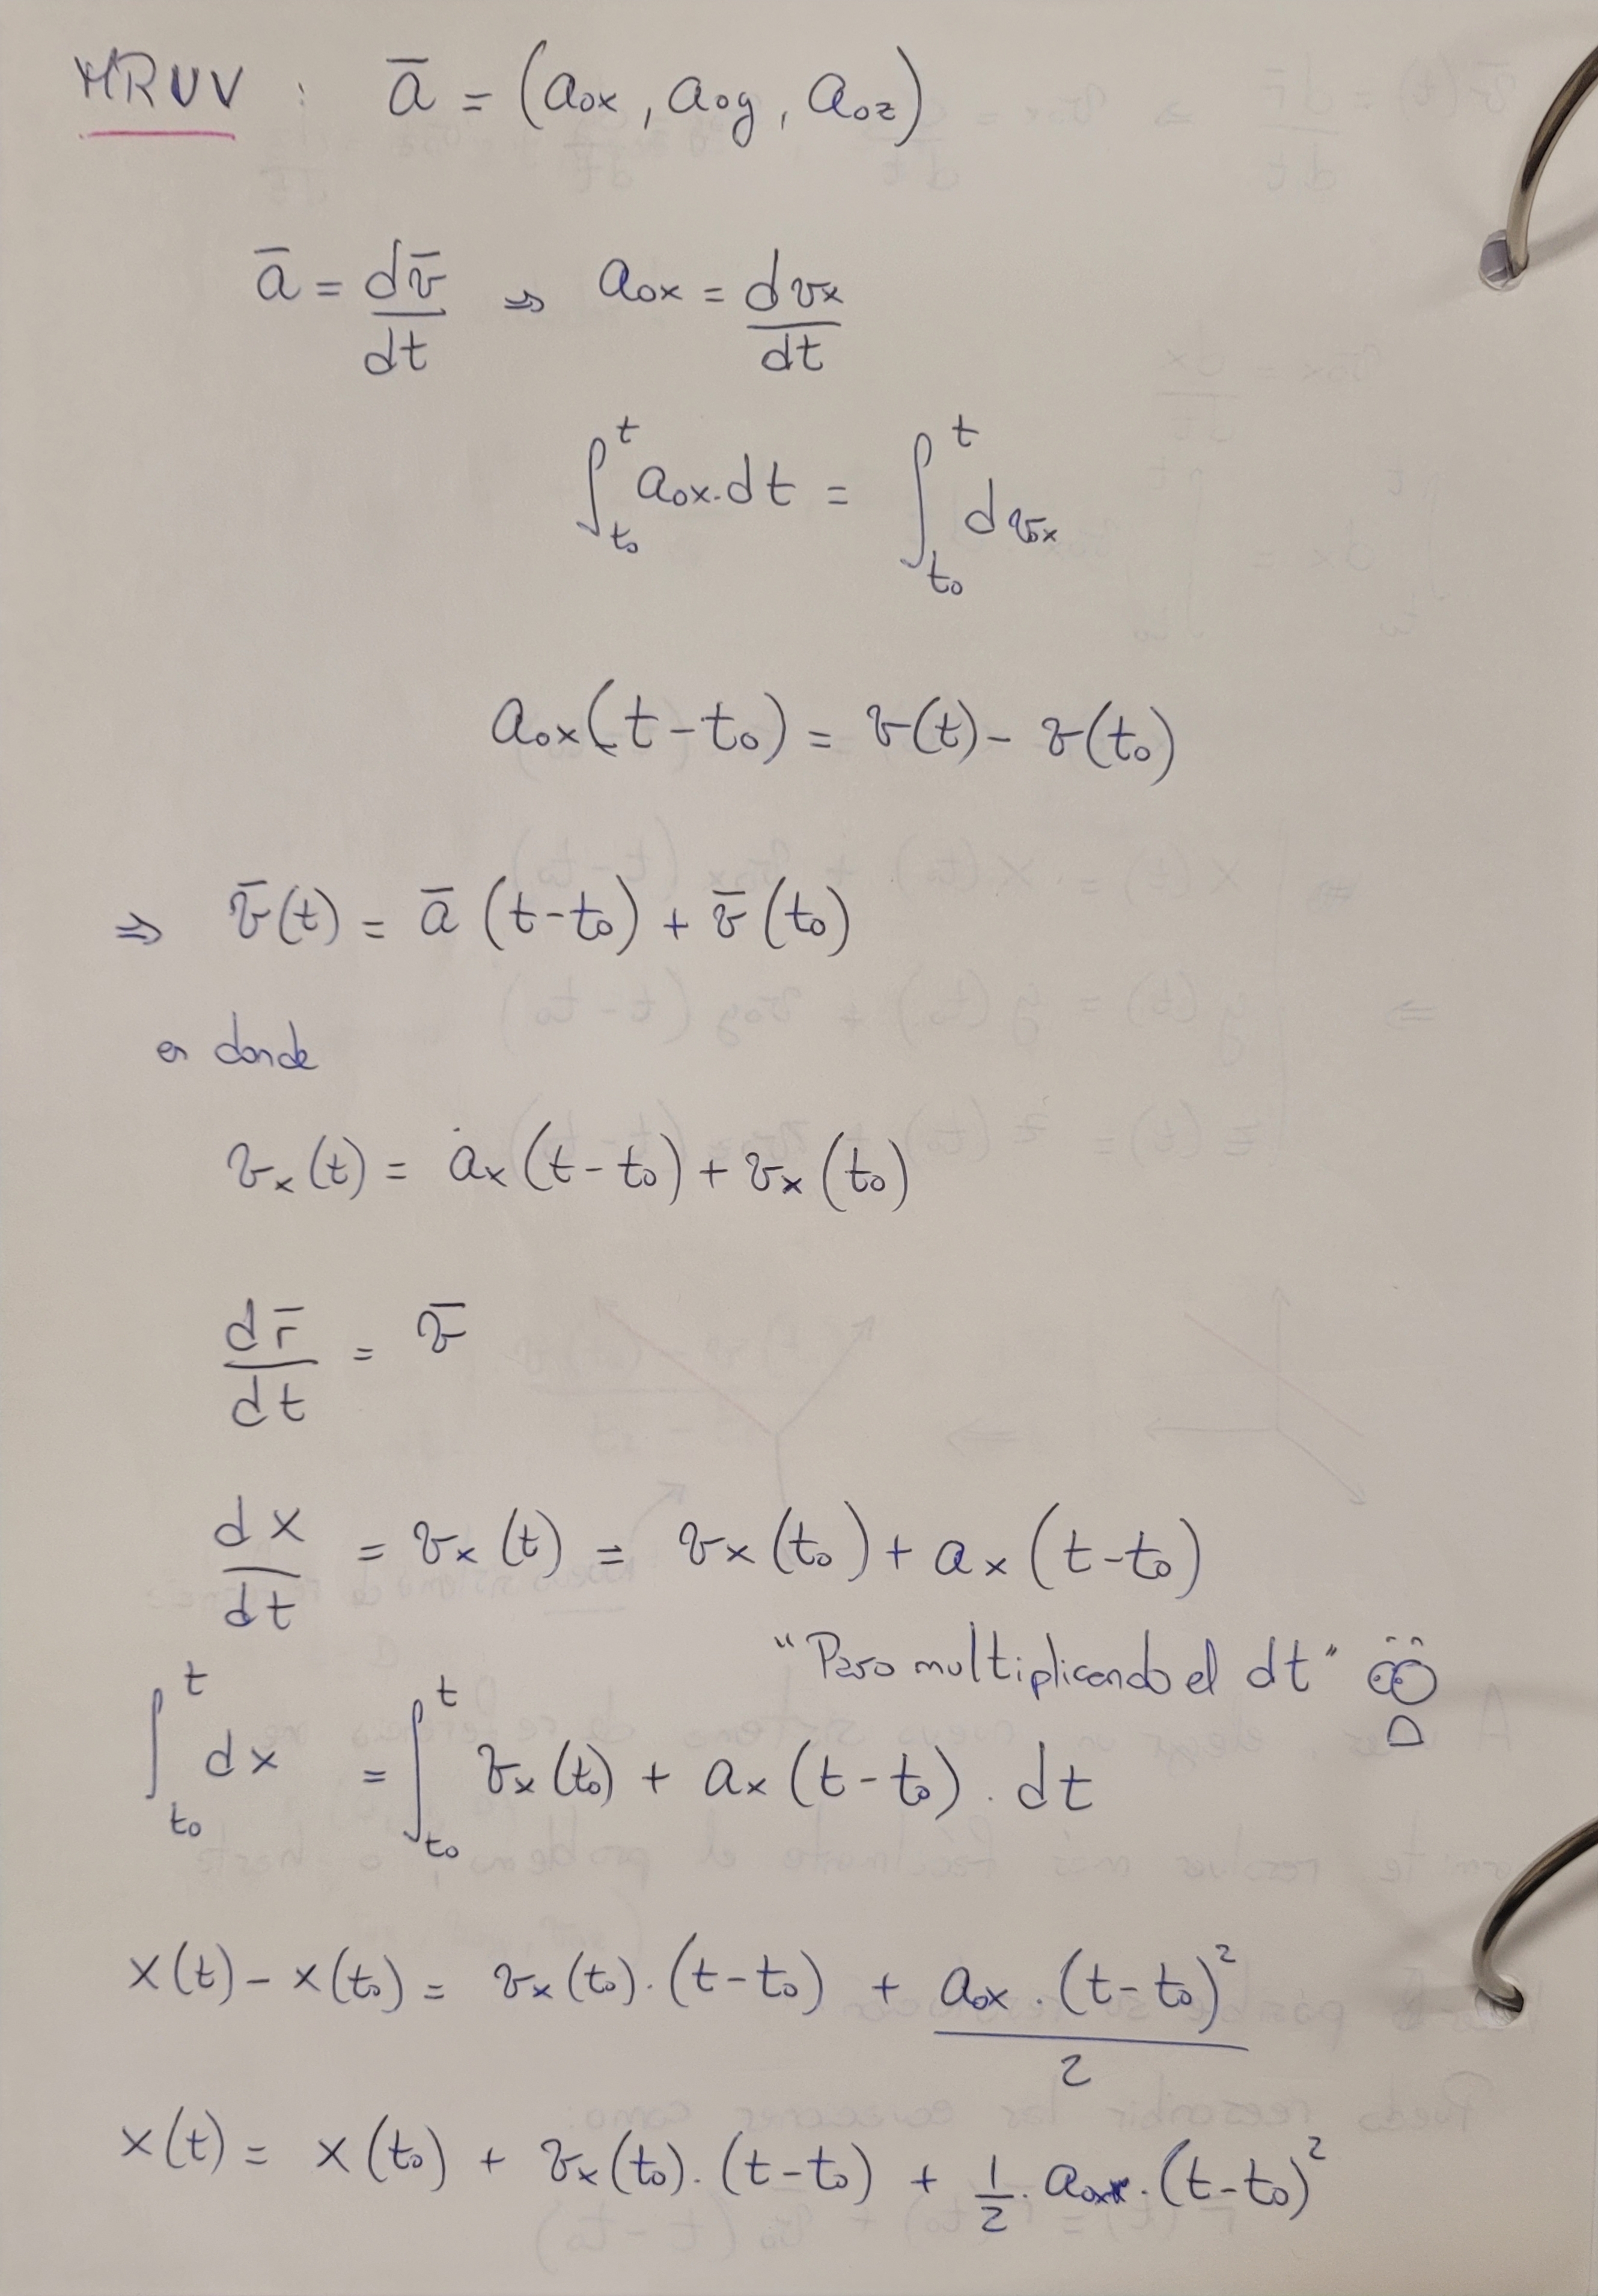 MRUV : ā = (a₀ₓ, a₀y, a₀z)
ā = dv̄/dt ⇒ a₀ₓ = dvₓ/dt
∫ₜ₀ᵗ a₀ₓ.dt = ∫ₜ₀ᵗ dvₓ
a₀ₓ(t-t₀) = v(t) - v(t₀)
⇒ v̄(t) = ā (t-t₀) + v̄(t₀)
en donde
vₓ(t) = aₓ(t-t₀) + vₓ(t₀)
dr̄/dt = v̄
dx/dt = vₓ(t) = vₓ(t₀) + aₓ(t-t₀)
"Paso multiplicando el dt"
∫ₜ₀ᵗ dx = ∫ₜ₀ᵗ vₓ(t₀) + aₓ(t-t₀) . dt
x(t) - x(t₀) = vₓ(t₀).(t-t₀) + a₀ₓ.(t-t₀)²/2
x(t) = x(t₀) + vₓ(t₀).(t-t₀) + 1/2.a₀ₓ.(t-t₀)²